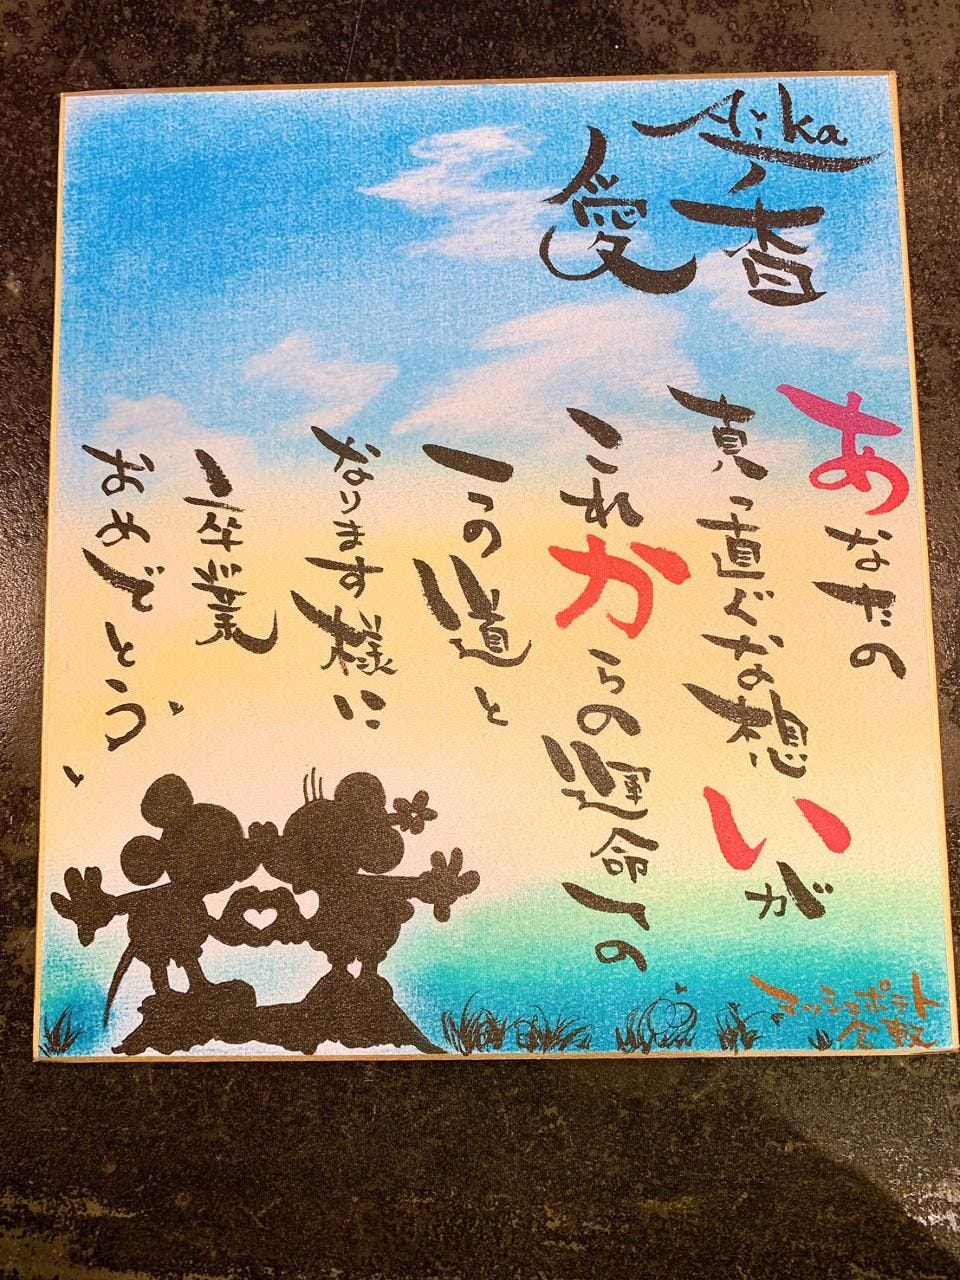 Aika
愛香
あなたの
真っ直ぐな想いが
これからの運命への
一つの道と
なります様に
卒業
おめでとう
マッシュポテト